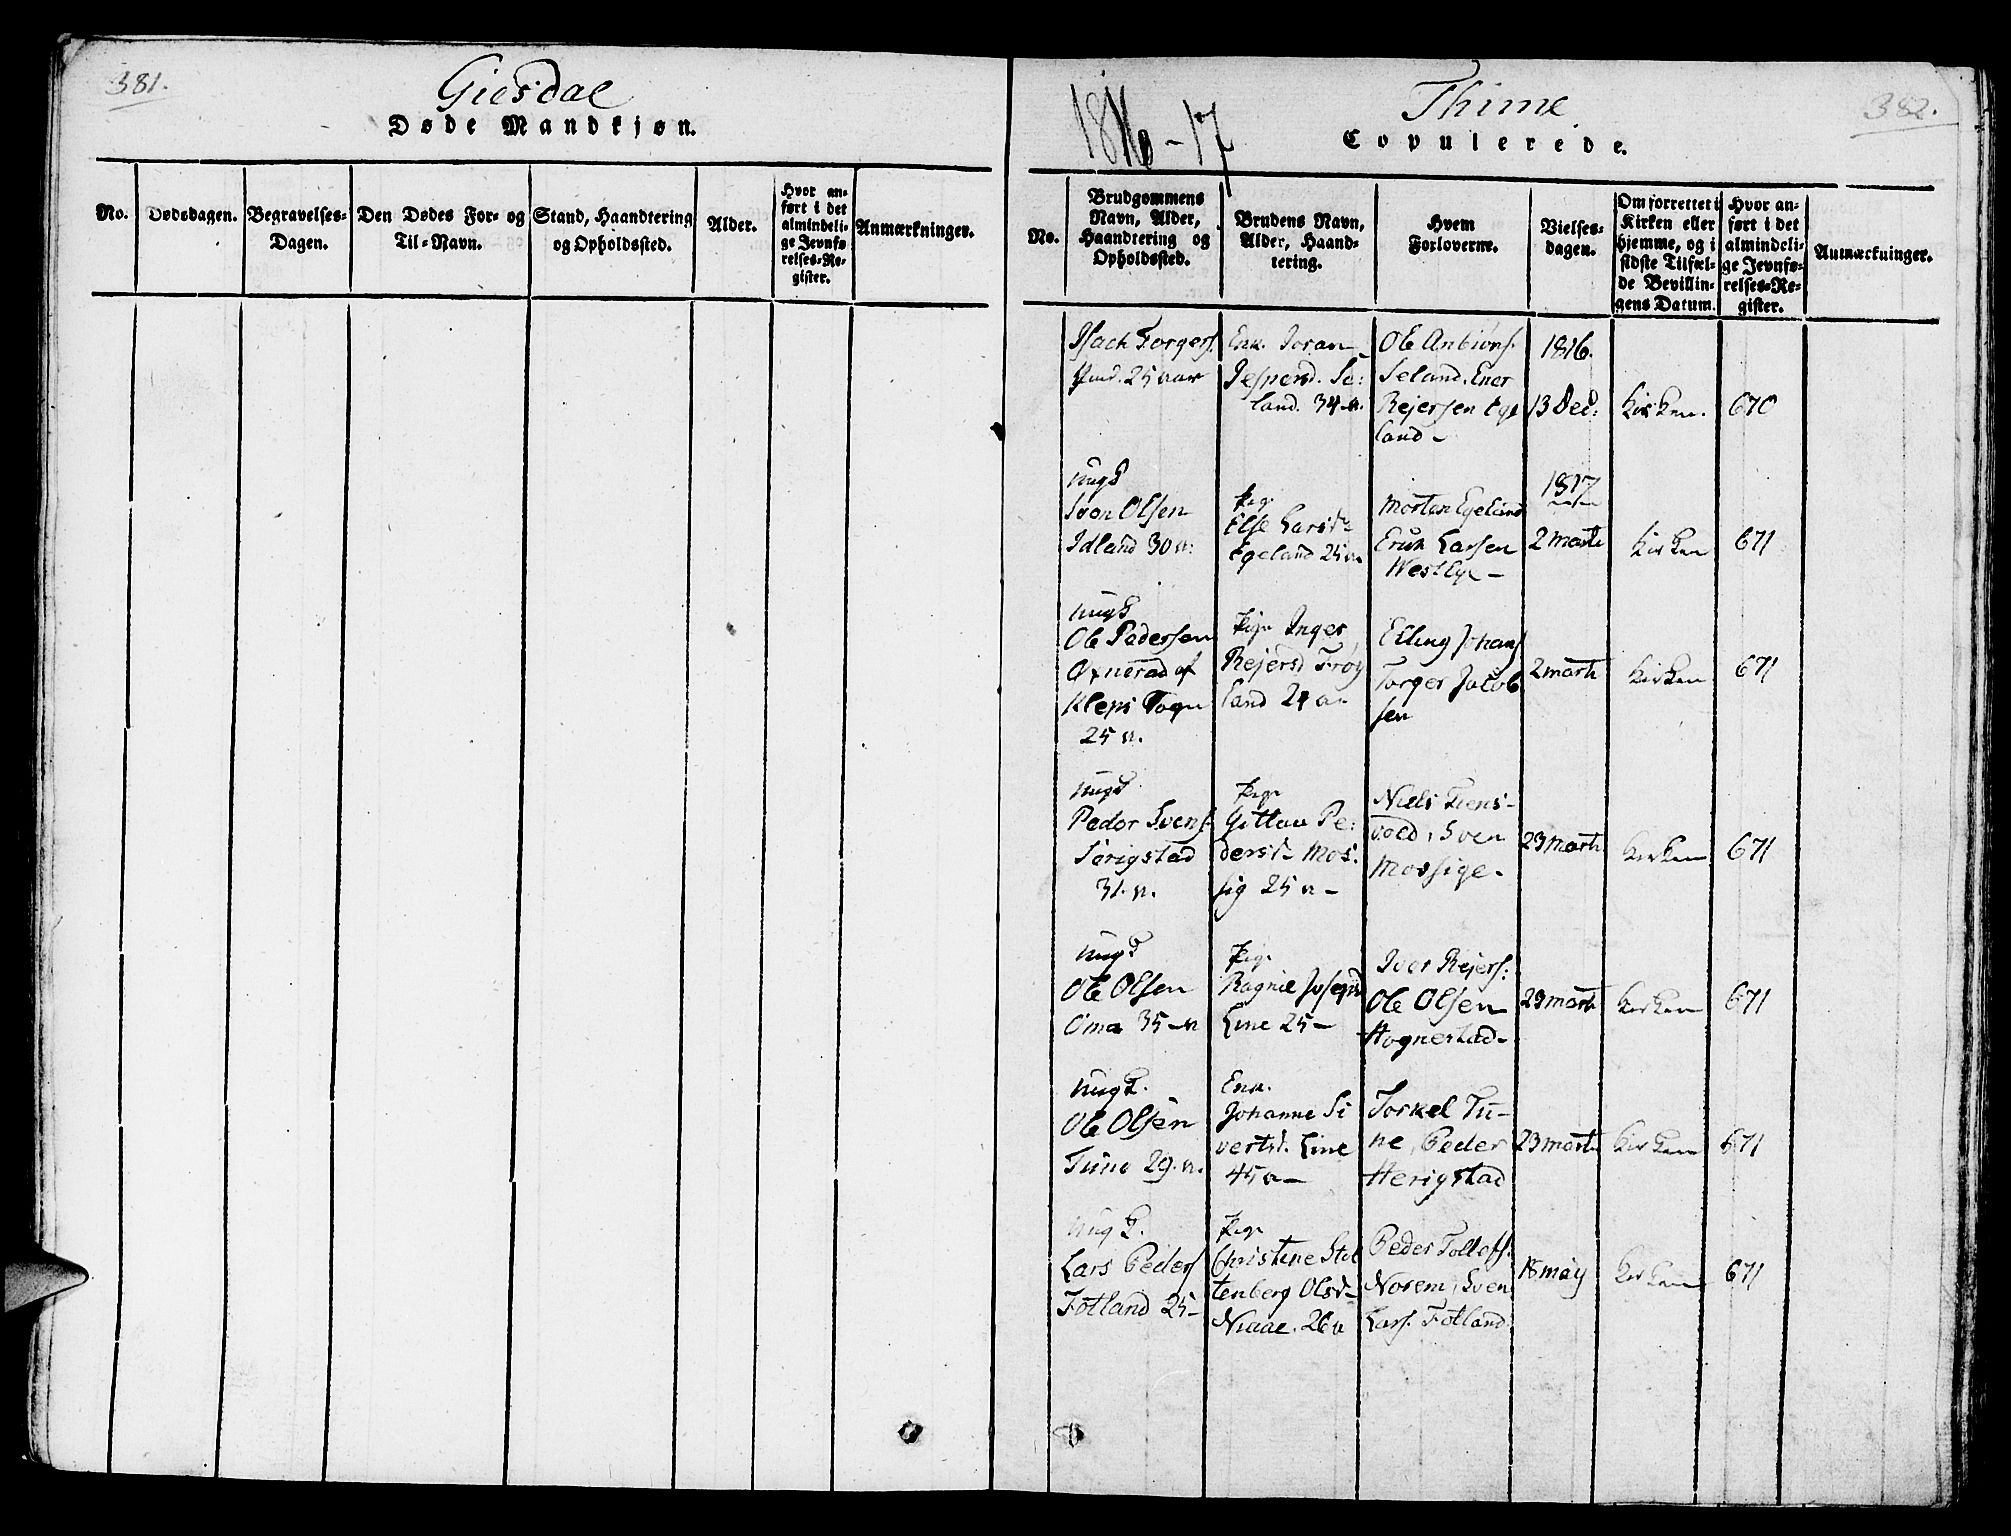 381.
Giesdae
Døde Mandkjøn.
No.
Dødsdagen.
Begravelses-
Dagen.
Den Dødes For- og
Til-Navn.
Stand, Haandtering
og Opholdssted.
Alder.
Hvor an-
ført i det
almindeli-
ge Jevnfø-
relses-Re-
gister.
Anmærkninger.
382.
1816-17
Thime
Copulerede.
No.
Brudgommens
Navn, Alder,
Haandtering og
Opholdssted.
Brudens Navn,
Alder, Haand-
tering.
Hvem
Forloverne.
Vielses-
dagen.
Om forrettet i
Kirken eller
hjemme, og i
sidste Tilfæl-
de Bevillin-
gens Datum.
Hvor an-
ført i det
almindeli-
ge Jevnfø-
relses-Re-
gister.
Anmærkninger.
Isach Torgers.
25 aar
Enk. Joran
Jespersd. Se:
land. 34 a.
Ole Anbiøns.
Seland. Ener
Rejersen Ege
land -
1816.
13 Dec:
Kirken.
670
ungk
Sven Olsen
Idland 30 a:
Pige
Else Larsd
Egeland 25 a.
Morten Egeland
Erick Larsen
West Ege -
1817
2 marti
Kirken
671
ungk
Ole Pedersen
Oxnerad af
Klepi Sogn
25 a.
Pige Inger
Rejersd Frøy
land 24 a -
Elling Johans
Torger Jacob
sen
2 marti
Kirken
671
ungk
Peder Svens.
Serigstad
31. a.
Pige
Gittau Pe:
dersd - Mos:
sig 25 a -
Niels Tiens-
voed, Sven
Mossige.
23 marti
Kirken
671
ungk
Ole Olsen
Oma 35 - a
Pige
Ragnie Joseps
Line 25 -
Iver Rejers:
Ole Olsen
Hognestad -
23 marti
Kirken
671
ungk.
Ole Olsen
Tune 29. a.
Enk.
Johanne Si
vertsd. Line
45 a -
Torkel Tu-
ne, Peder
Herigstad
23 marti
Kirken
671
ungk.
Lars Peders
Fotland 25 -
Pige
Christene Stol
tenberg Olsd -
Niaae. 26 a
Peder Tollefs.
Norem, Sven
Lars. Fotland
18 maÿ
Kirken
671